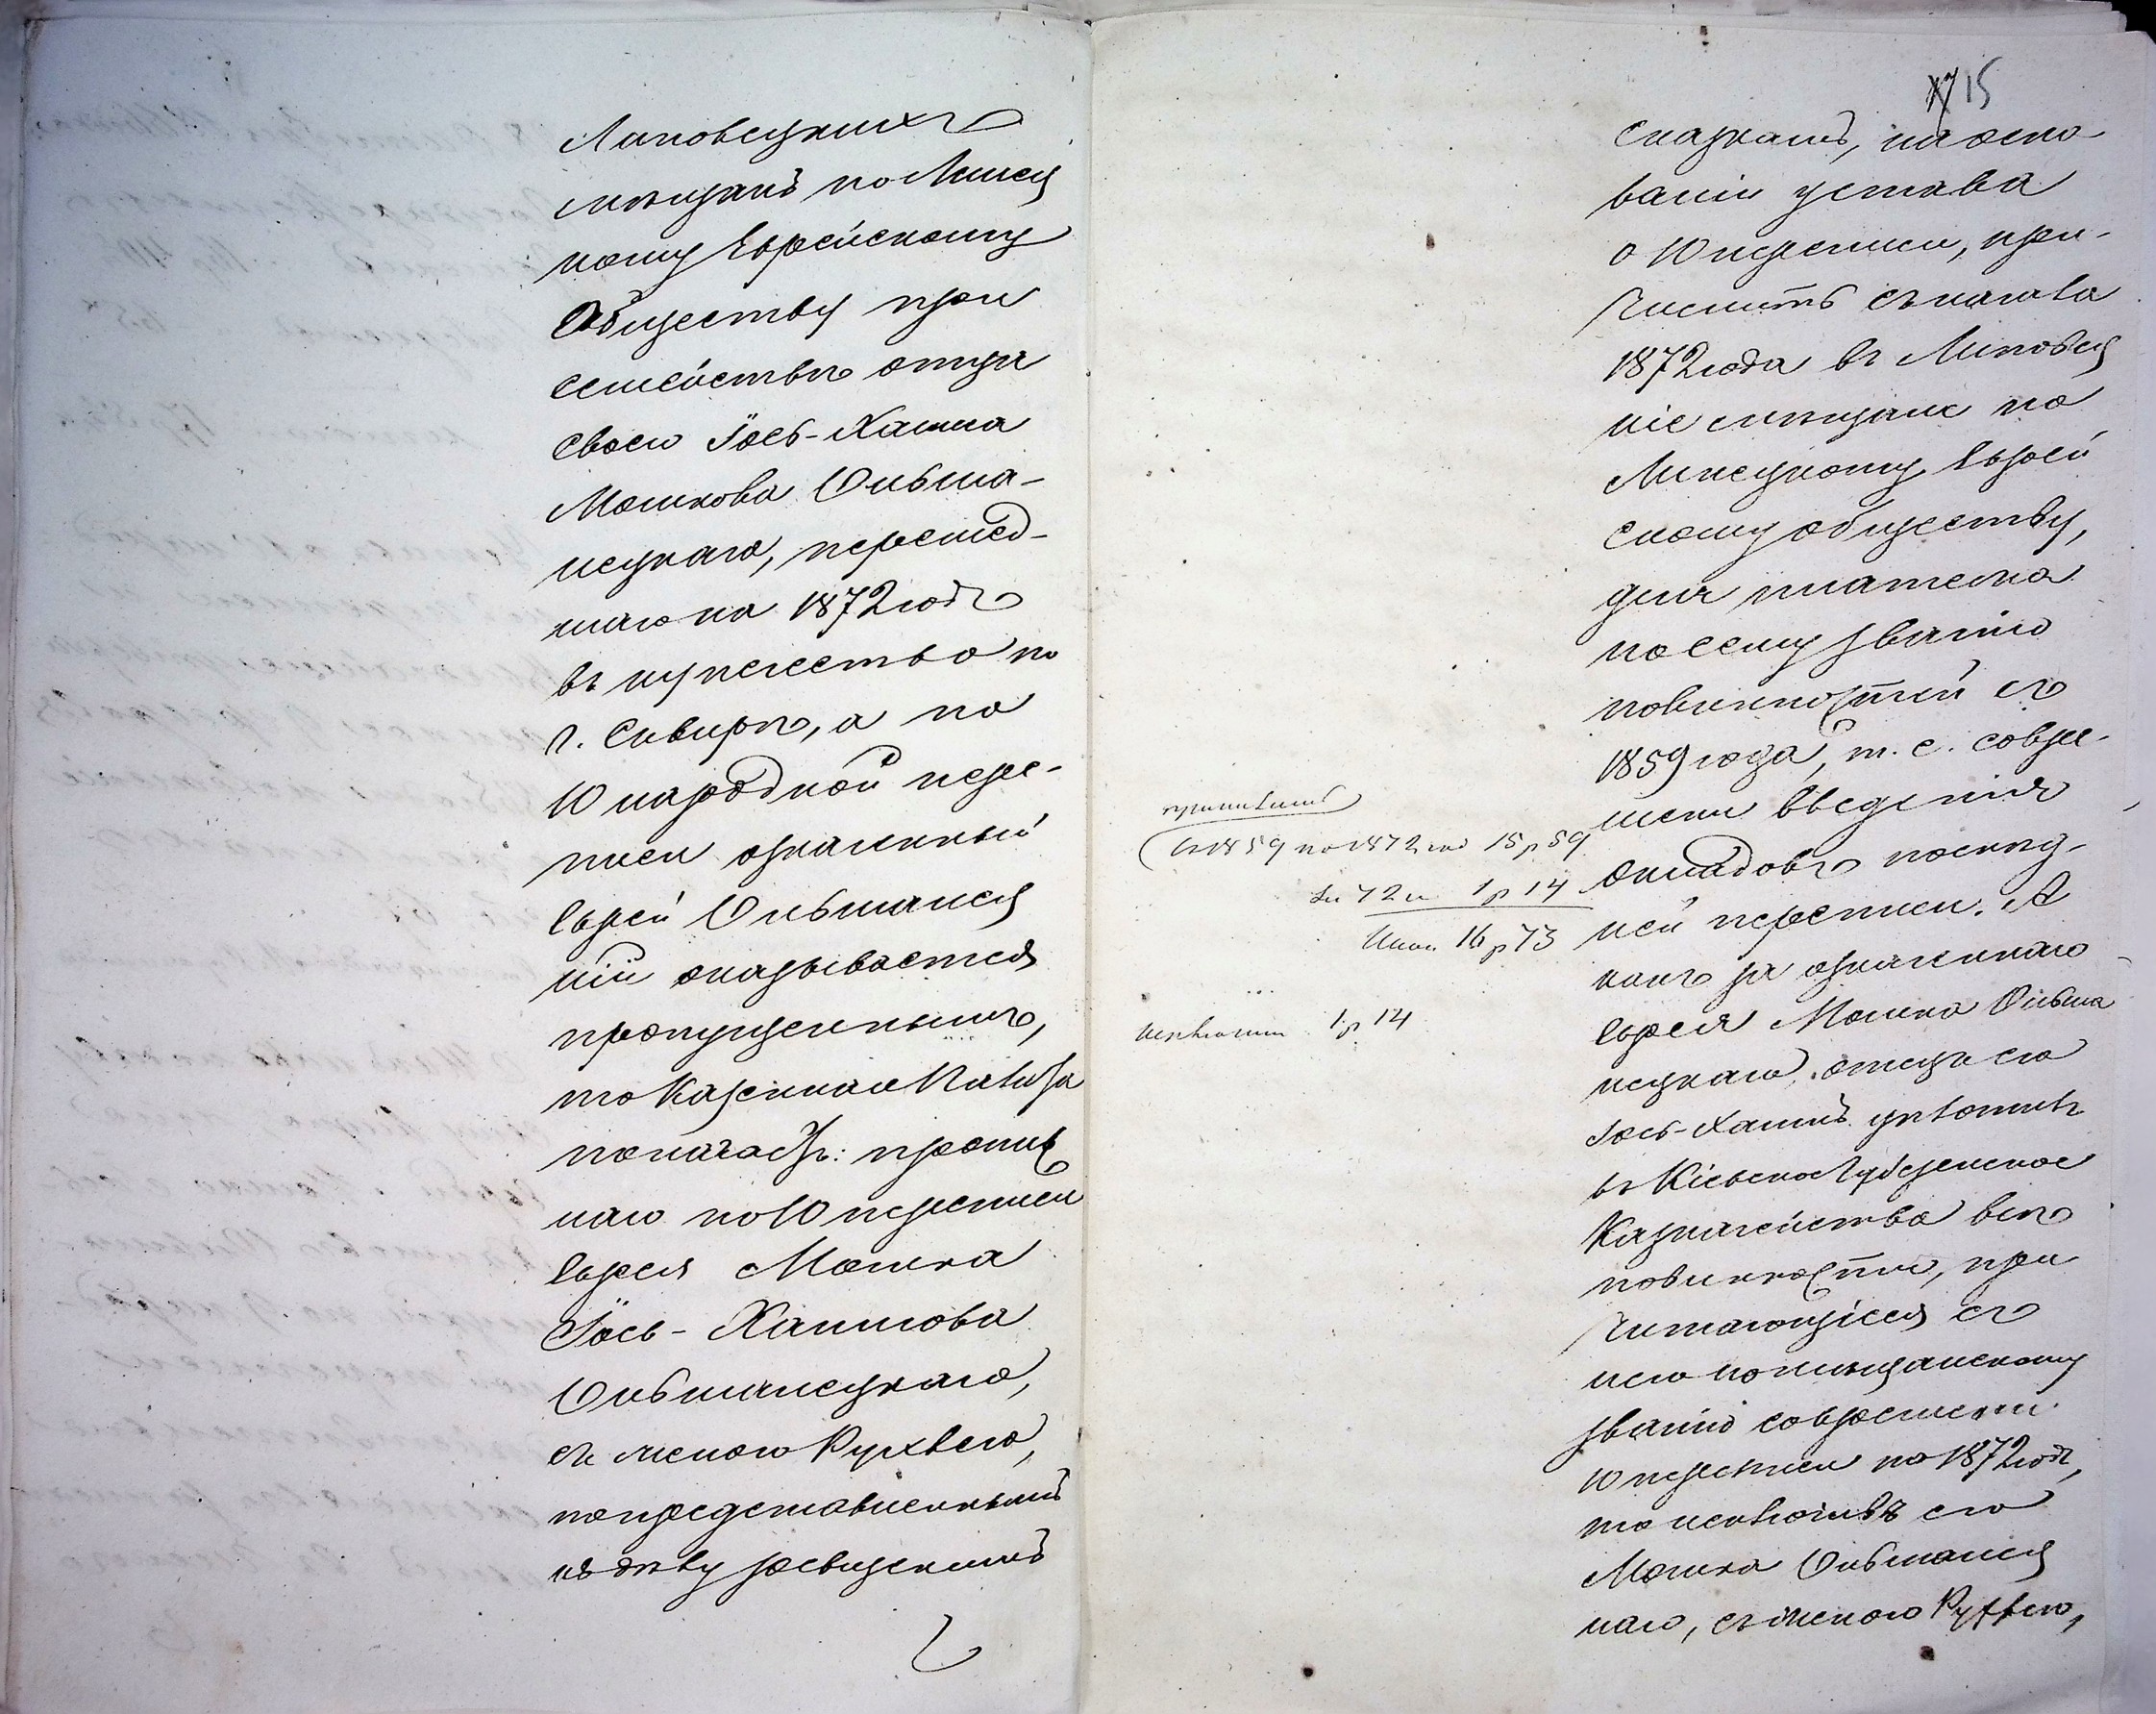 Липовецкихъ
мѣщанъ по Линец
кому Еврейскому
Обществу при
семействѣ отца
своего Іось-Хаима
Мошкова Ольша-
нецкаго, перешед-
шаго на 1872 годъ
въ купечество по
г. Сквирѣ, а по
10 народной пере-
писи означенный
Еврей Ольшанец
кій оказывается
пропущеннымъ,
то Казенная Палата
полагаетъ: пропис
наго по 10 переписи
Еврея Мошка
Іось-Хаимова
Ольшанецкаго,
съ женою Рухлею,
по представленнымъ
къ дѣлу ревизскимъ
15
сказкамъ, на осно
ваніи устава
о 10 переписи, при-
числить съ начала
1872 года въ Липовец
кіе мѣщане по
Линецкому Еврей
скому обществу,
для платежа
по сему званію
повинностей съ
1859 года, т. е. со вре-
мени введенія
окладовъ послѣд-
ней переписи. А
какъ за означеннаго
Еврея Мошка Ольша
нецкаго, отецъ его
Іось-Хаимъ уплотилъ
въ Кіевское Губернское
Казначейство всѣ
повинности, при
читающіеся съ
него по мѣщанскому
званію со времени
10 переписи по 1872 годъ,
то исключивъ его
Мошка Ольшанец
каго, съ женою Рухлею,
причислить
съ 1859 по 1872 год 15 р 59
за 72 г 1 р 14
Итого 16 р 73
исключить 1 р 14